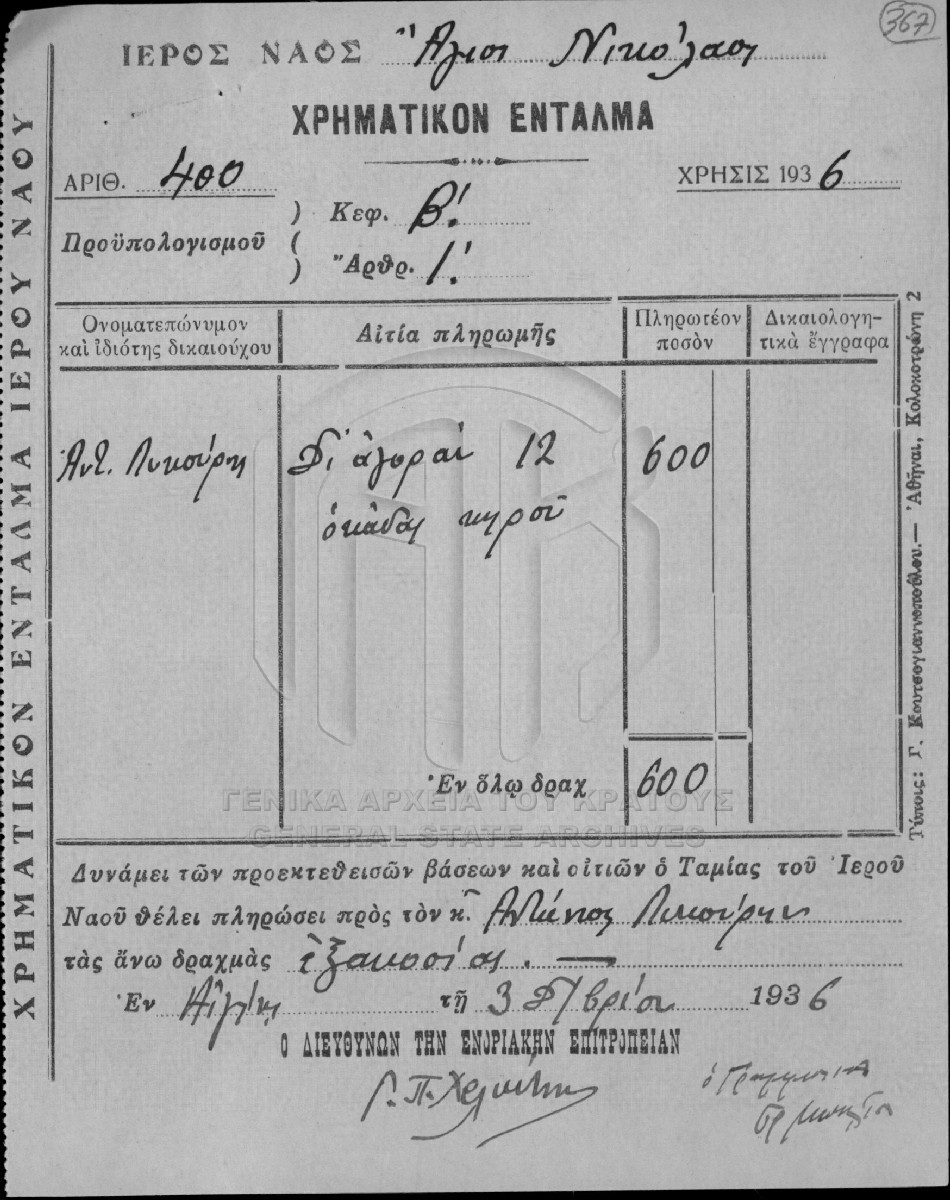 367
ΙΕΡΟΣ ΝΑΟΣ Ἅγιος Νικόλαος
ΧΡΗΜΑΤΙΚΟΝ ΕΝΤΑΛΜΑ
ΑΡΙΘ. 400
ΧΡΗΣΙΣ 1936
Προϋπολογισμοῦ
Κεφ. Β!
Ἄρθρ. 1!
Ὀνοματεπώνυμον καὶ ἰδιότης δικαιούχου
Αἰτία πληρωμῆς
Πληρωτέον ποσὸν
Δικαιολογητικὰ ἔγγραφα
Ἀντ. Λυκούρη
Δι' ἀγορὰν 12
600
ὀκάδας κηροῦ
Ἐν ὅλῳ δραχ 600
ΓΕΝΙΚΑ ΑΡΧΕΙΑ ΤΟΥ ΚΡΑΤΟΥΣ
GENERAL STATE ARCHIVES
Δυνάμει τῶν προεκτεθεισῶν βάσεων καὶ οἰτιῶν ὁ Ταμίας τοῦ Ἱεροῦ
Ναοῦ θέλει πληρώσει πρὸς τὸν κ. Ἀντώνιος Λυκούρην
τὰς ἄνω δραχμὰς ἑξακοσίας. —
Ἐν Αἰγίνῃ τῇ 3 Δ/βρίου 1936
Ο ΔΙΕΥΘΥΝΩΝ ΤΗΝ ΕΝΟΡΙΑΚΗΝ ΕΠΙΤΡΟΠΕΙΑΝ
Γ. Π.
ὁ Γραμματεὺς
ΧΡΗΜΑΤΙΚΟΝ ΕΝΤΑΛΜΑ ΙΕΡΟΥ ΝΑΟΥ
Τύποις: Γ. Κουτσογιαννοπούλου.— Ἀθῆναι, Κολοκοτρώνη 2